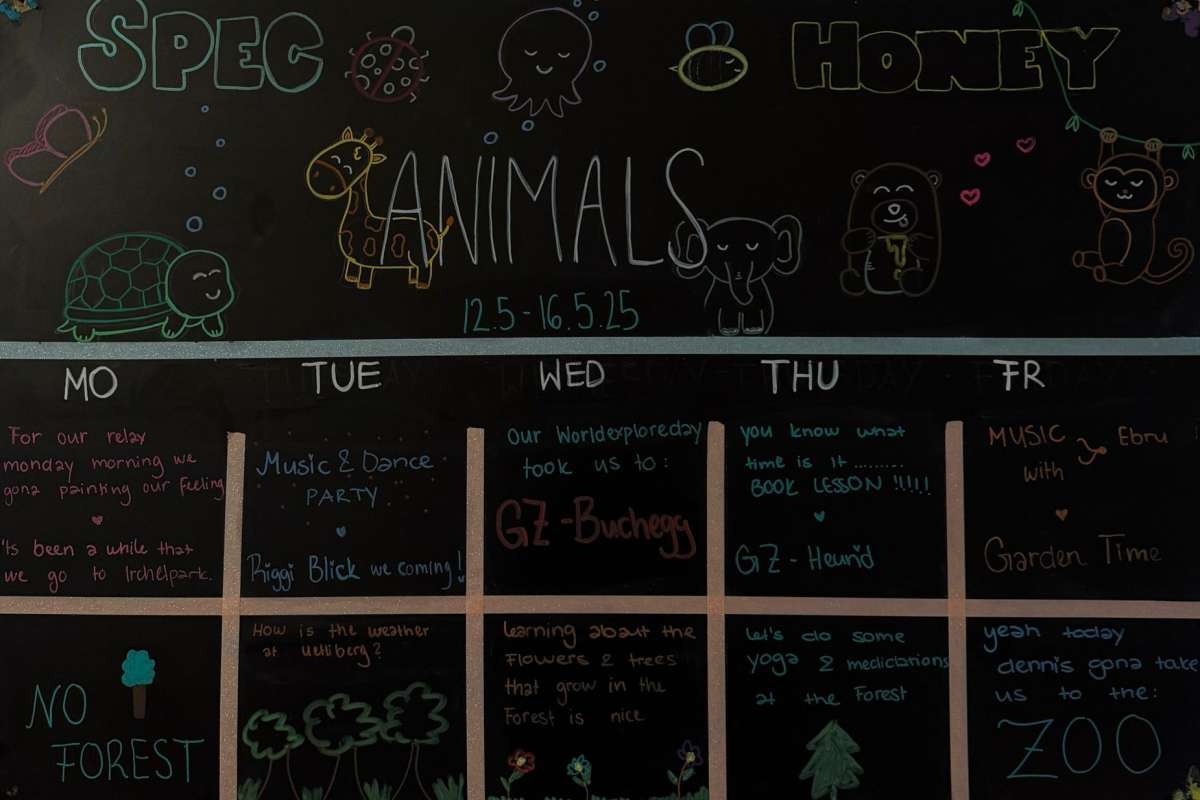 SPEC HONEY
ANIMALS
12.5-16.5.25
MO TUE WED THU FR
For our relax
monday morning we
gona painting our feeling
'ts been a while that
we go to Irchelpark.
Music & Dance
PARTY
Riggi Blick we coming!
Our Worldexploreday
took us to:
GZ-Buchegg
you know what
time is it .........
BOOK LESSON !!!!!
GZ-Heurid
MUSIC
with
Ebru
Garden Time
NO
FOREST
How is the weather
at uetliberg?
learning about the
Flowers & trees
that grow in the
Forest is nice
let's do some
yoga & medictations
at the Forest
yeah today
dennis gona take
us to the:
ZOO